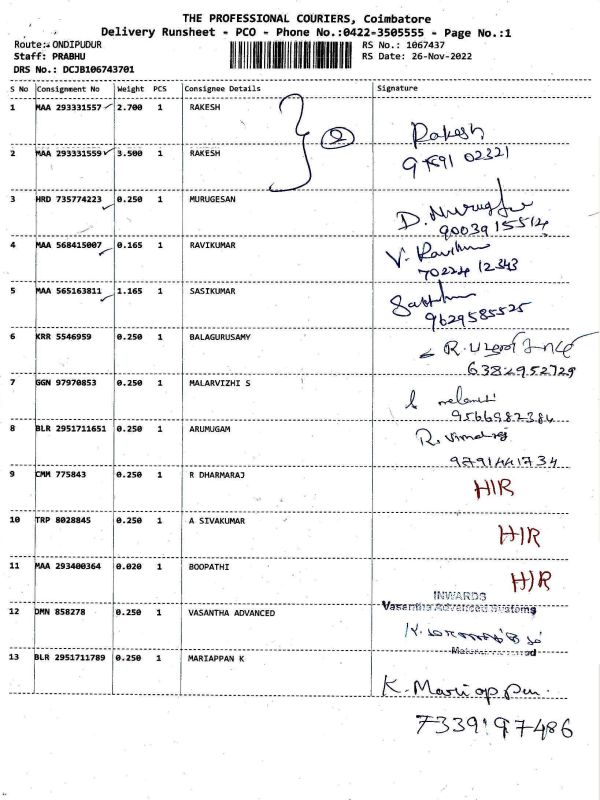 THE PROFESSIONAL COURIERS, Coimbatore
Delivery Runsheet - PCO - Phone No.:0422-3505555 - Page No.:1
Route:- ONDIPUDUR
RS No.: 1067437
Staff: PRABHU
RS Date: 26-Nov-2022
DRS No.: DCJB106743701
S No Consignment No Weight PCS Consignee Details Signature
1 MAA 293331557 2.700 1 RAKESH
2
Rakesh
2 MAA 293331559 3.500 1 RAKESH
02321
3 HRD 735774223 0.250 1 MURUGESAN
9003915514
4 MAA 568415007 0.165 1 RAVIKUMAR
70224 12343
5 MAA 565163811 1.165 1 SASIKUMAR
9629585525
6 KRR 5546959 0.250 1 BALAGURUSAMY
6382952729
7 GGN 97970853 0.250 1 MALARVIZHI S
9566982384
8 BLR 2951711651 0.250 1 ARUMUGAM
9791441734
9 CMM 775843 0.250 1 R DHARMARAJ
HIR
10 TRP 8028845 0.250 1 A SIVAKUMAR
HIR
11 MAA 293400364 0.020 1 BOOPATHI
HIR
INWARDS
Vasantha Advanced Systems
12 DMN 858278 0.250 1 VASANTHA ADVANCED
13 BLR 2951711789 0.250 1 MARIAPPAN K
K. Mariappan.
7339197486